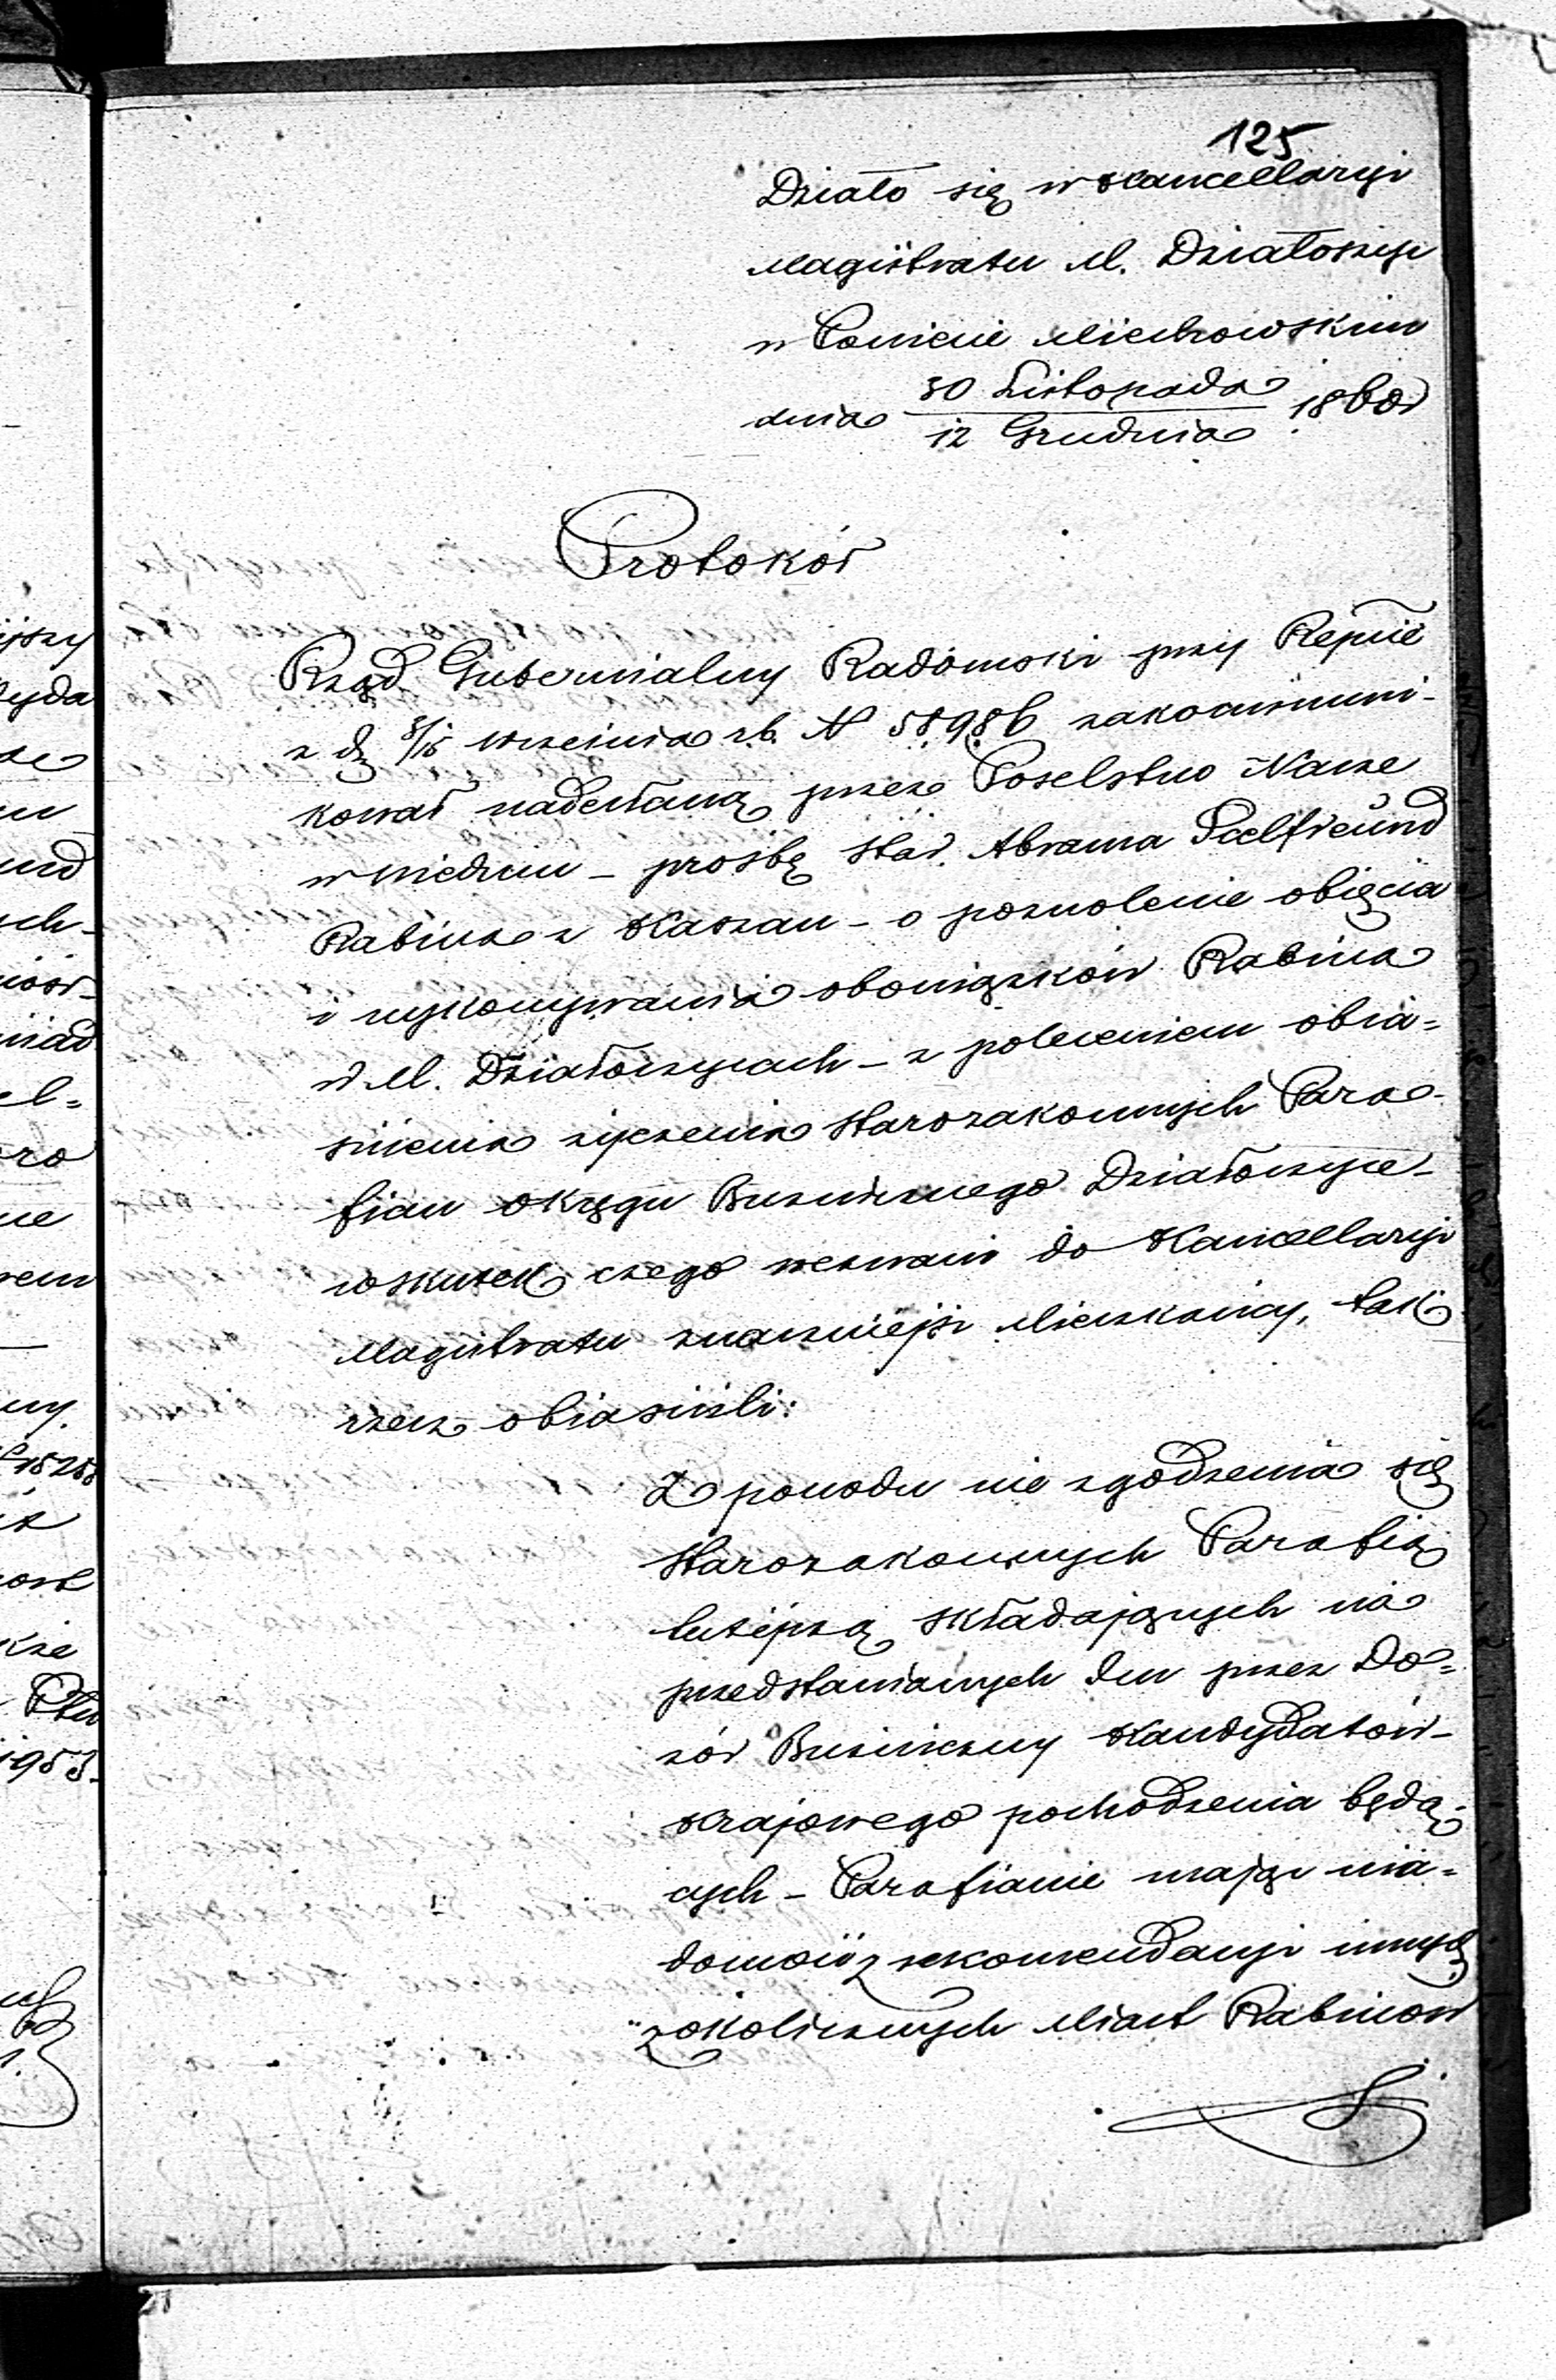 125
Działo się w Kancellaryi
Magistratu M. Działoszyc
w Powiecie Miechowskim
dnia 30 Listopada / 12 Grudnia 1860 r
Protokół
Rząd Gubernialny Radomski przy Repcie
z d. 3/15 Września r.b. N 58986 zakommuni-
kował nadesłaną przez Poselstwo Nasze
w Wiedniu – prośbę Star. Abrama
Rabina z Kaszau – o pozwolenie obięcia
i wykonywania obowiązków Rabina
w M. Działoszycach – z poleceniem obia=
śnienia życzenia Starozakonnych Para-
fian Okręgu Bużnicznego Działoszyce –
wskutek czego wezwani do Kancellaryi
Magistratu znaczniejsi Mieszkańcy, tak
rzecz obiaśnili:
Z powodu nie zgodzenia się
Starozakonnych Parafią
tutejszą składających na
przedstawianych Im przez Do=
zór Bużniczny Kandydatów –
Krajowego pochodzenia będą-
cych – Parafianie mając wia=
domość z rekomendacyi innych
z okolicznych Miast Rabinów
ijszy
eyda
ae
und
ych-
iad
el=
ro
ne
rem
ny.
15258
ość
kże
1953.